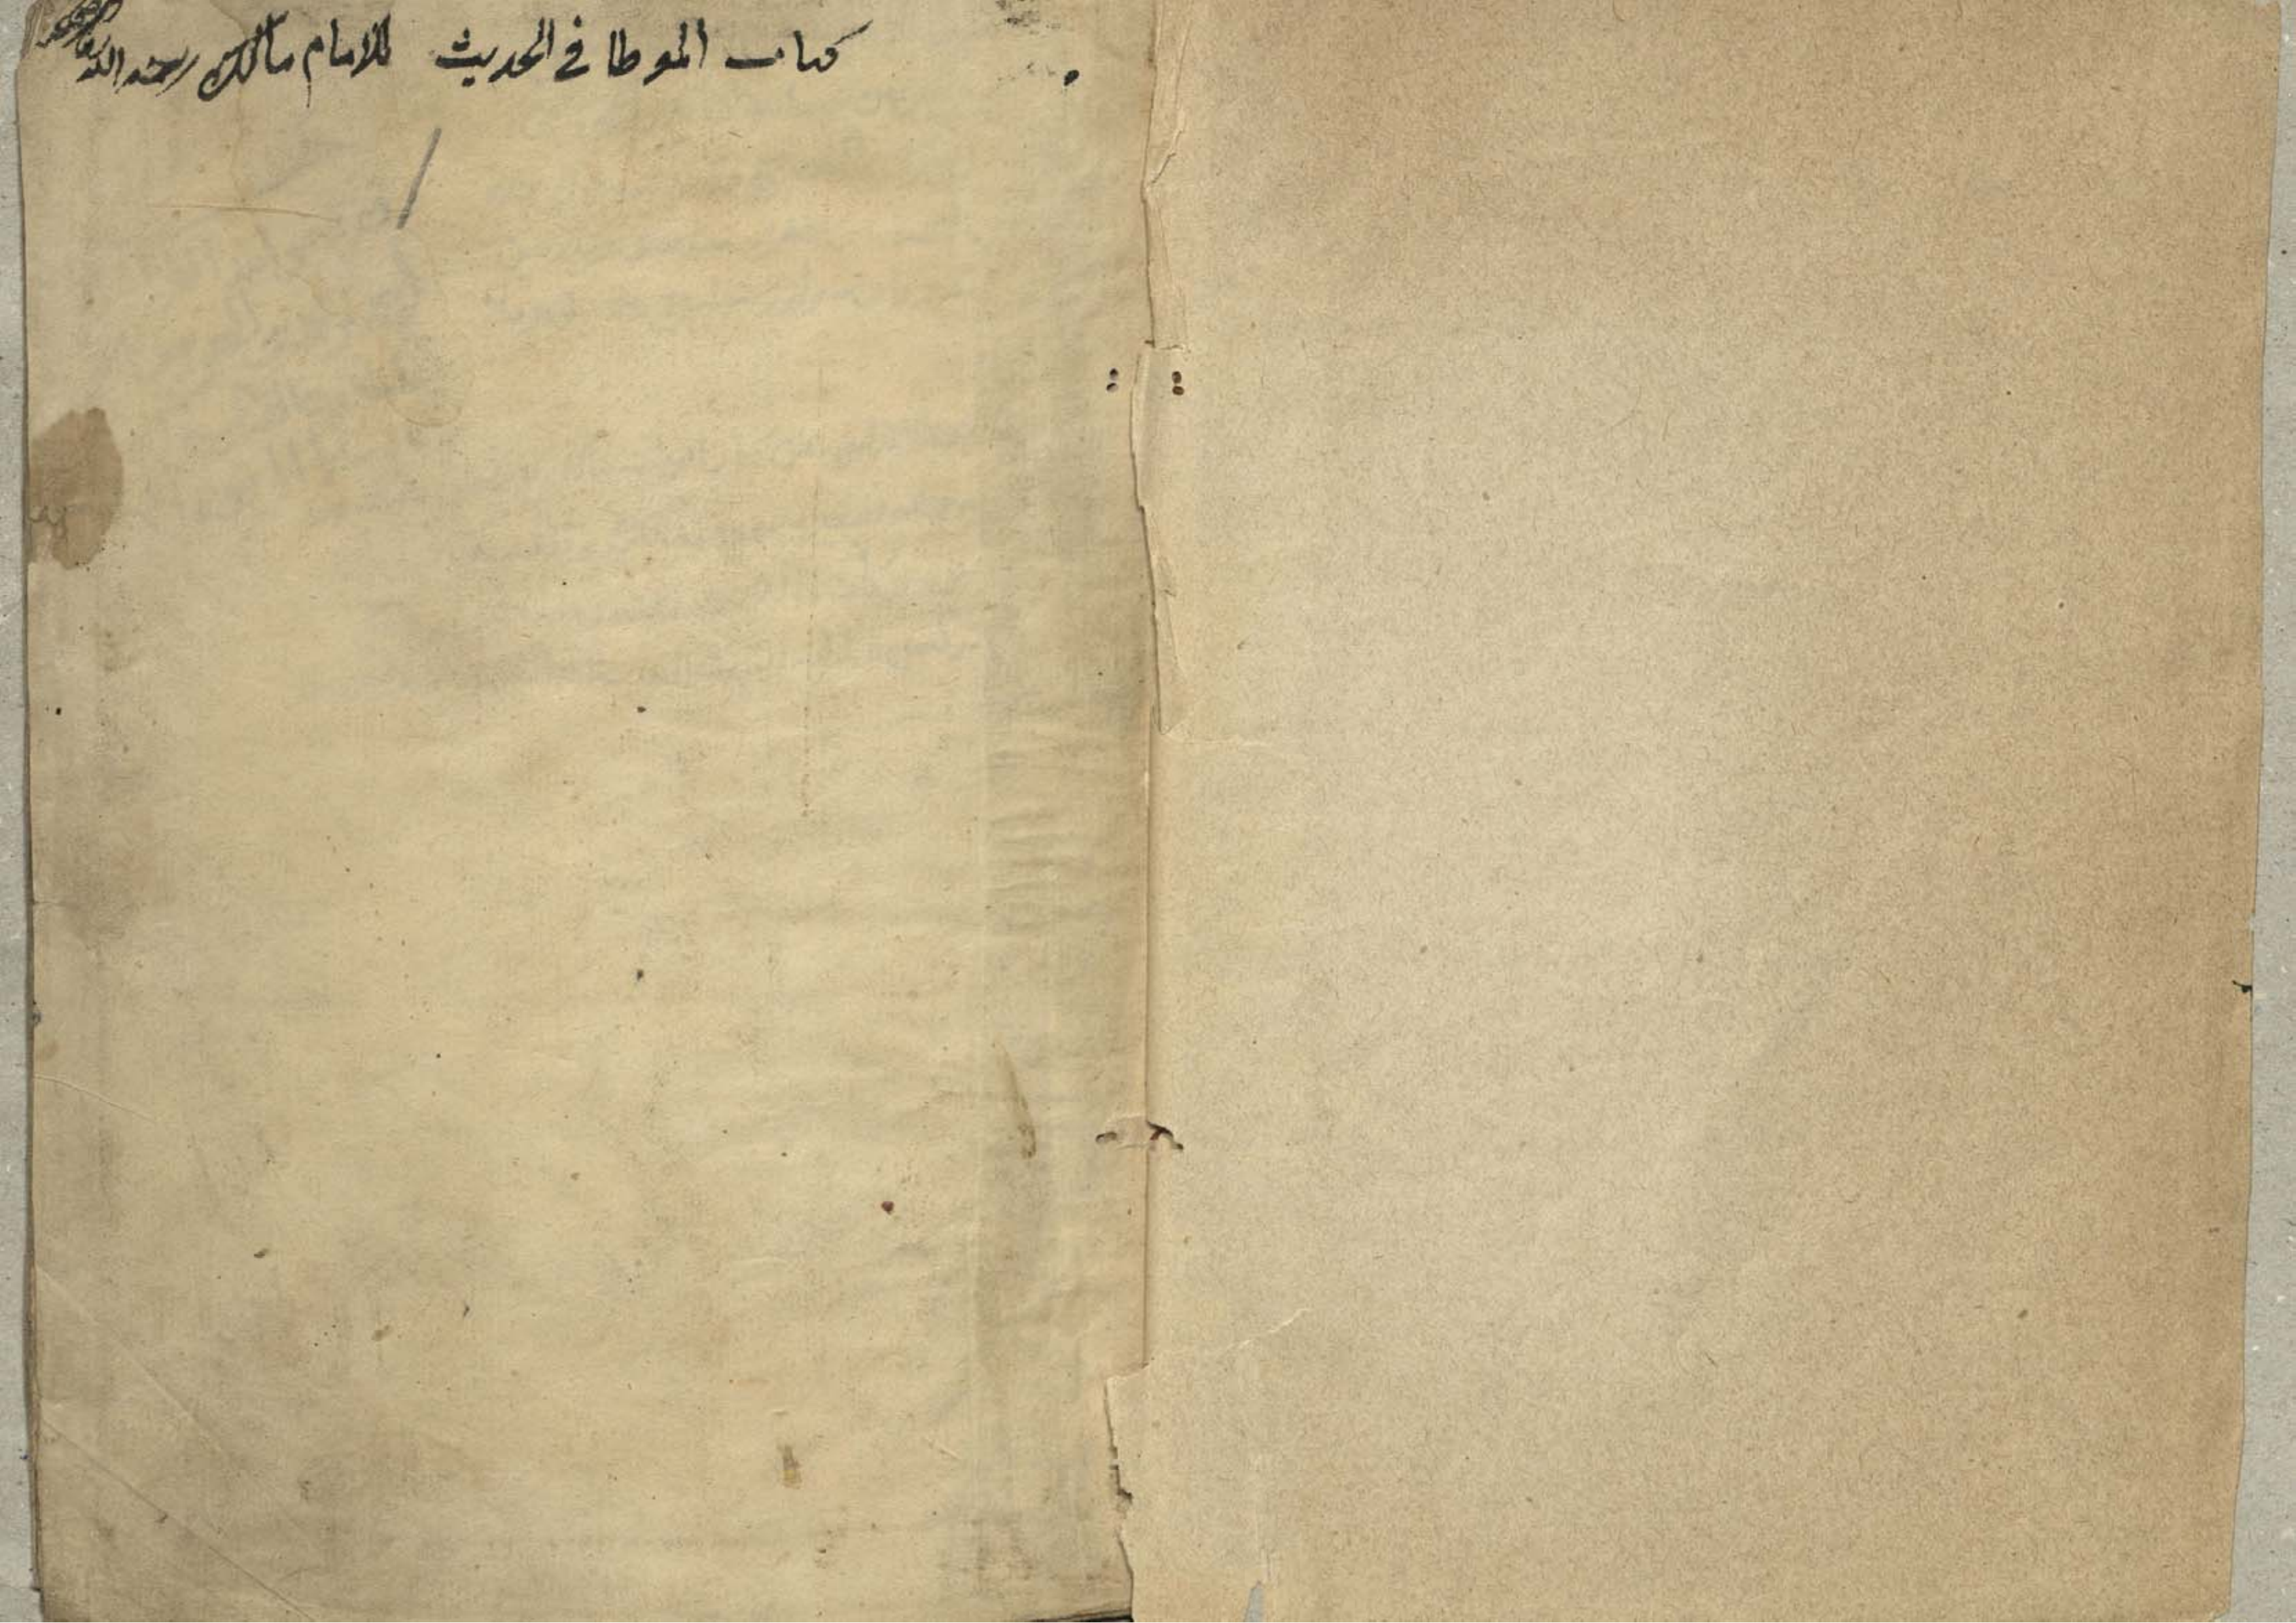 كتاب الموطا في الحديث للامام مالك رحمه الله